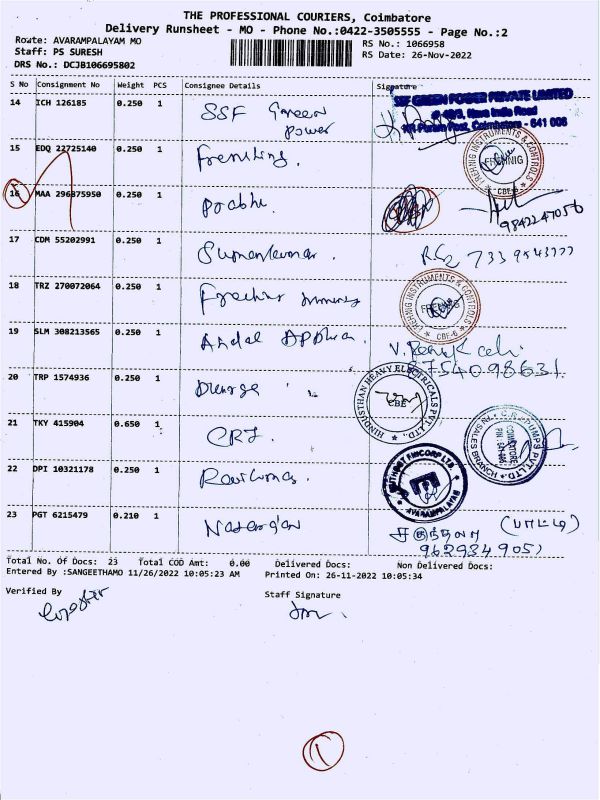 THE PROFESSIONAL COURIERS, Coimbatore
Delivery Runsheet - MO - Phone No.:0422-3505555 - Page No.:2
Route: AVARAMPALAYAM MO
RS No.: 1066958
Staff: PS SURESH
RS Date: 26-Nov-2022
DRS No.: DCJB106695802
S No Consignment No Weight PCS Consignee Details Signature
14 ICH 126185 0.250 1 SSF Green
power
SSF GREEN POWER PRIVATE LIMITED
Nava India Road
Post, Coimbatore - 641 006
15 EDQ 22725140 0.250 1
FREHNIG INSTRUMENTS & CONTROLS
FREHNIG
CBE-6
16 MAA 296875950 0.250 1 Prabhu
9842247056
17 CDM 55202991 0.250 1
18 TRZ 270072064 0.250 1
FREHNIG INSTRUMENTS & CONTROLS
FREHNIG
CBE-6
19 SLM 308213565 0.250 1 Andal
8754098631
20 TRP 1574936 0.250 1
HINDUSTHAN HEAVY ELECTRICALS PVT. LTD.
CBE
21 TKY 415904 0.650 1 CRI
C.R.I. PUMPS PVT. LTD.
SALES BRANCH
COIMBATORE
22 DPI 10321178 0.250 1
MUTHOOT FINCORP LTD.
AVARAMPALAYAM
23 PGT 6215479 0.210 1
(பாட்டி)
9629349051
Total No. Of Docs: 23 Total COD Amt: 0.00 Delivered Docs: Non Delivered Docs:
Entered By :SANGEETHAMO 11/26/2022 10:05:23 AM Printed On: 26-11-2022 10:05:34
Verified By
Staff Signature
1